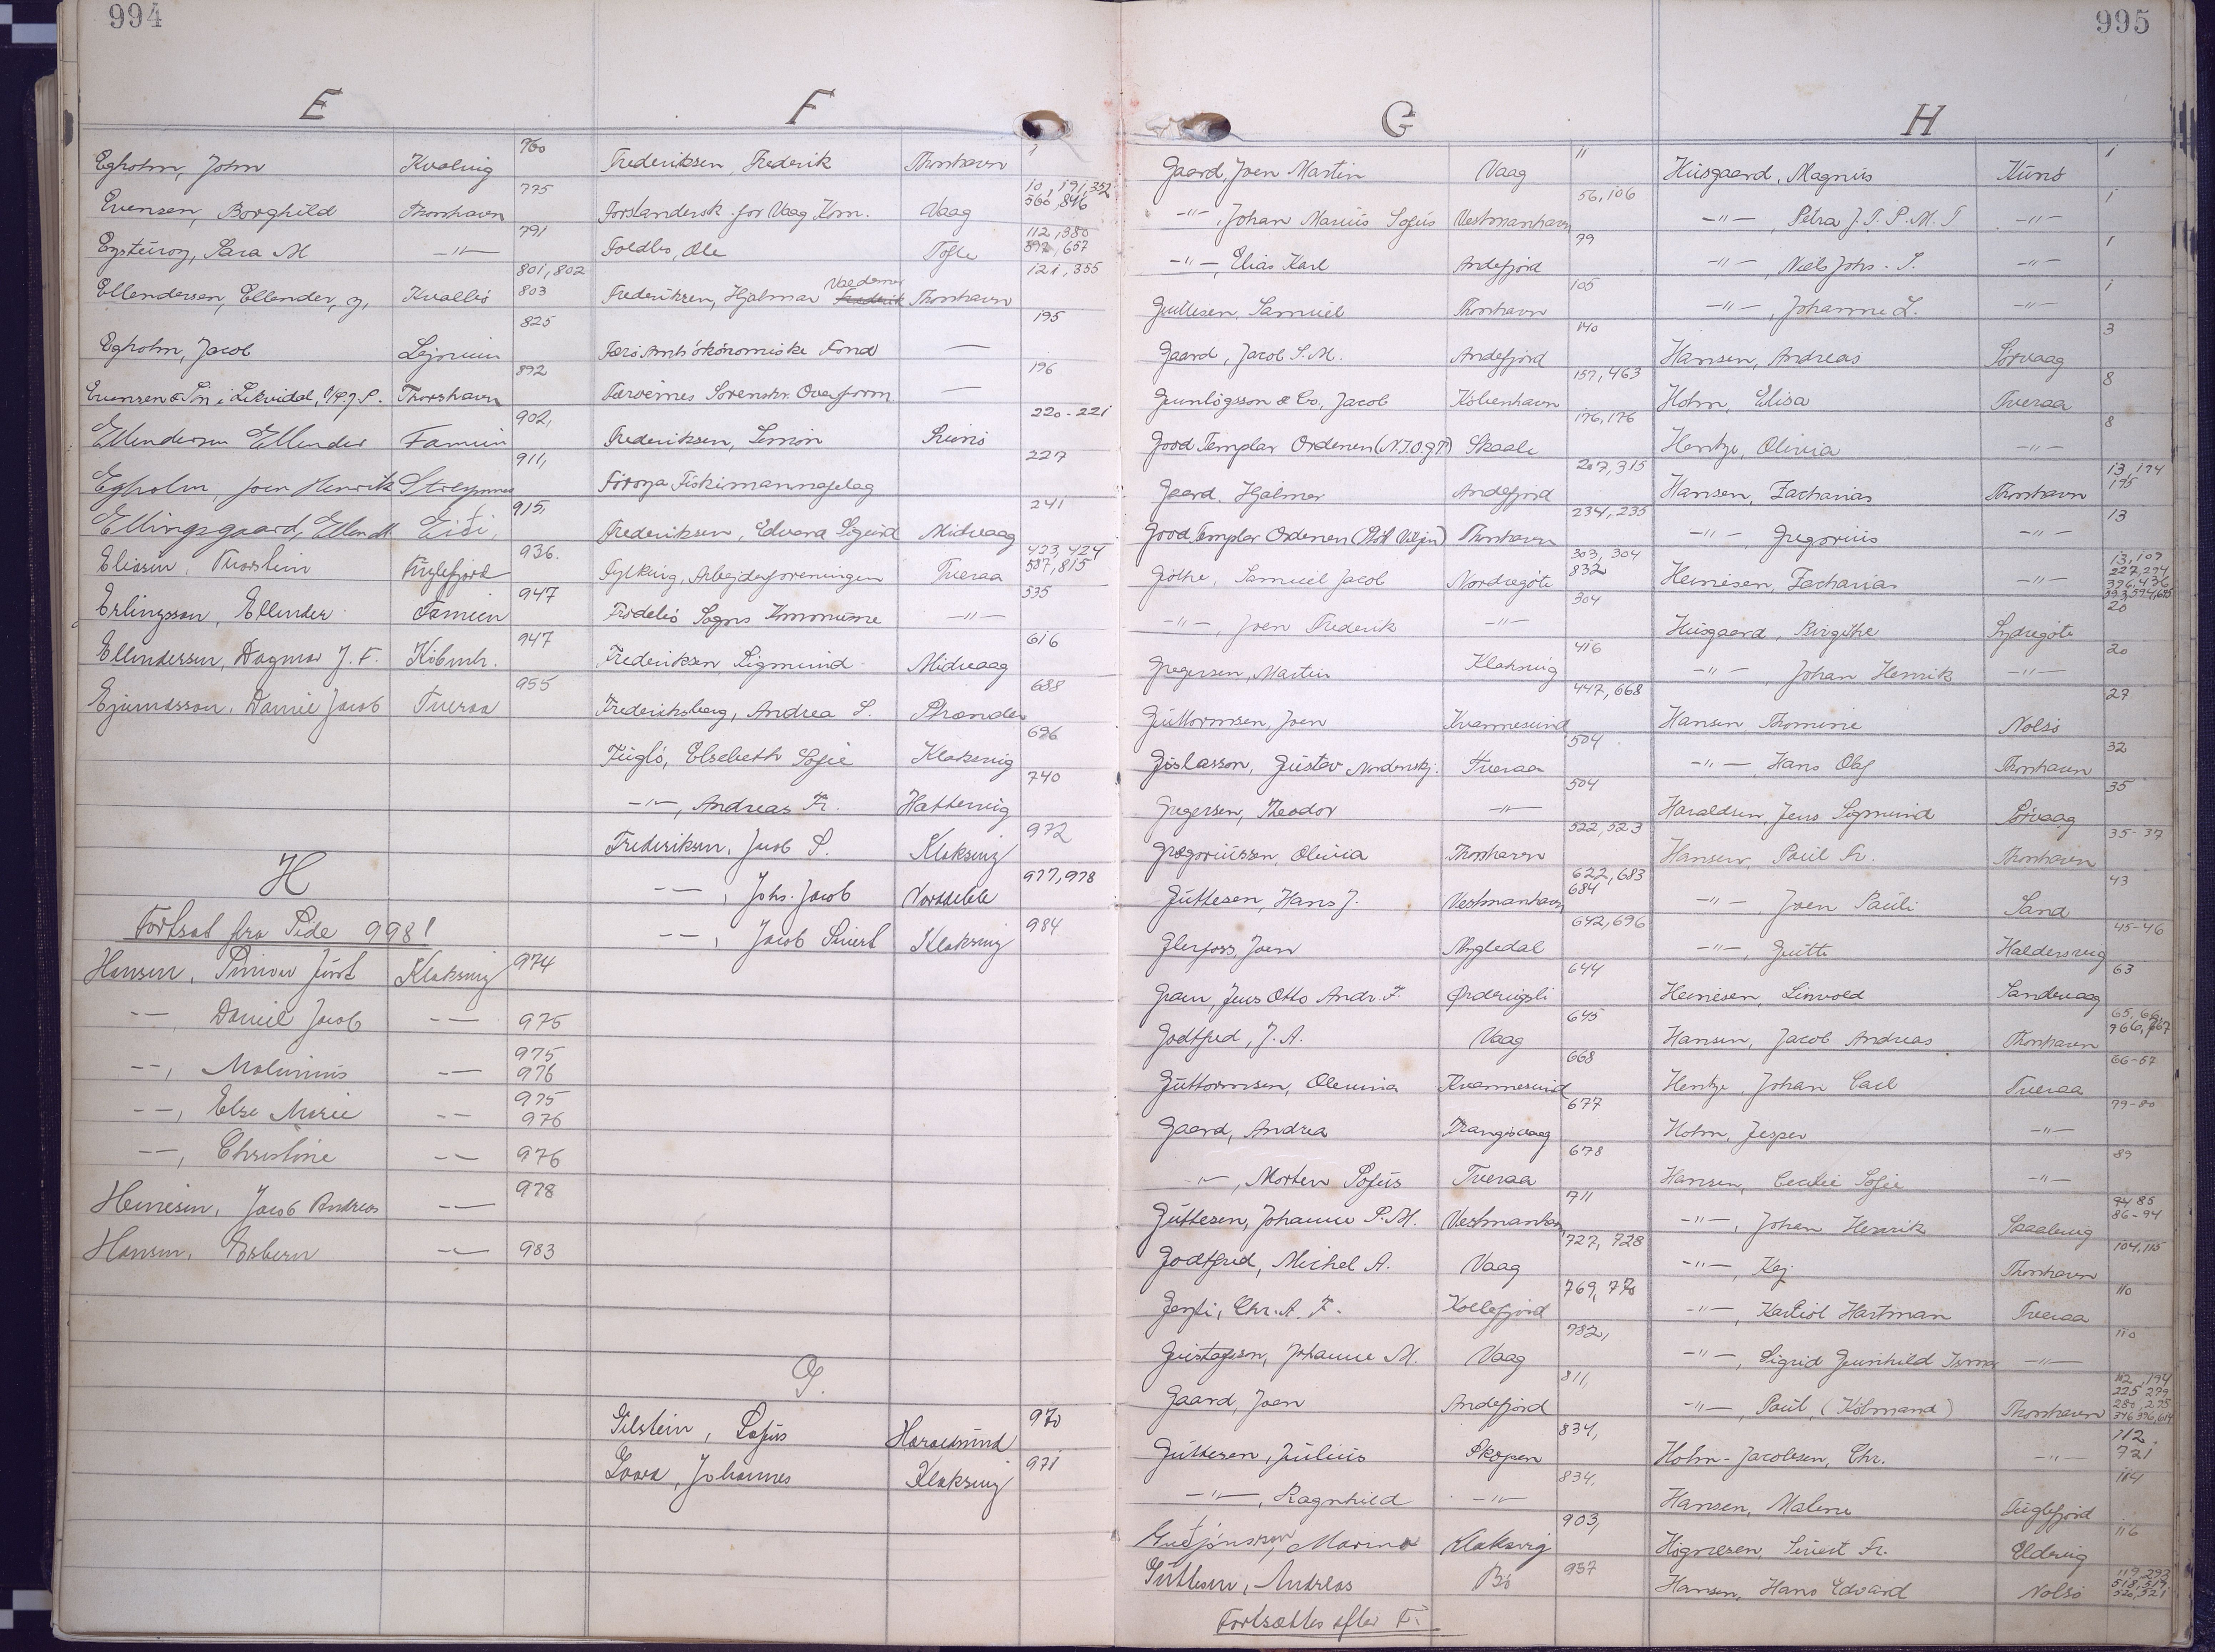 994
E
Egholm, John Kvalvig 760
Evensen, Borghild Thorshavn 775
Eysturoy, Sara M -"- 791
Ellendersen, Ellender, J. Kvalbø 801, 802 803
Egholm, Jacob Ljosum 825
Evensen & Søn i Likvidat., Thorshavn 892
Ellendersen Ellender Famiin 902,
Egholm, Joen Henrik Streymnes 911,
Ellingsgaard, Ellend M. Eiði, 915,
Eliasen, Thorstein Fuglefjord 936.
Erlingsson, Ellender Famien 947
Ellendersen, Dagmar J. F. Köbenh. 947
Ejvindsson, Daniel Jacob Tveraa 955
H
Fortsat fra Side 998!
Hansen, Klaksvig 974
-"-, Daniel Jacob -"- 975
-"-, Maluinus -"- 975 976
-"-, Else Marie -"- 975 976
-"-, Christine -"- 976
Heinesen, Jacob Andreas -"- 978
Hansen, Esbern -"- 983
F
Frederiksen, Frederik Thorshavn 1
Forstandersk. for Vaag Kom. Vaag 10, 191, 352 566, 846
Foldbo, Ole Tofte 112, 380 657
Frederiksen, Hjalmar Valdemar Frederik Thorshavn 121, 355
Færø Amts økonomiske Fond — 195
Færøernes Sorenskr. Overform — 196
Frederiksen, Simon 220-221
Föroya Fiskimannafelag 227
Frederiksen, Edvard Sigurd Midvaag 241
Fylking, Arbejderforeningen Tveraa 423, 424 587, 815
Frodebö Sogns Kommune -"- 535
Frederiksen Sigmund Midvaag 616
Frederiksberg, Andrea S. 688
Fuglö, Elsebeth Sofie Klaksvig 696
-"-, Andreas Fr. Hattervig 740
Frederiksen, Jacob S. Klaksvig 972
-"-, Johs. Jacob Norddeble 977, 978
-"-, Jacob Sivert Klaksvig 984
G.
Gilstein, Sofus Haraldsund 970
Gaard, Johannes Klaksvig 971
995
G
Gaard, Joen Martin Vaag 11
-"-, Johan Marius Sofus Vestmanhavn 56, 106
-"-, Elias Karl Andefjord 79
Guttesen, Samuel Thorshavn 105
Gaard, Jacob S. M. Andefjord 140
Gunlögsson & Co., Jacob Köbenhavn 157, 463
Good Templar Ordenen (N.I.O.G.T) Skaale 176, 176
Gaard, Hjalmar Andefjord 207, 315
Good Templar Ordenen Thorshavn 234, 235
Göthe, Samuel Jacob Nordregöte 303, 304 832
-"-, Joen Frederik -"- 304
Gregersen, Martin Klaksvig 416
Guttormsen, Joen Kvannesund 447, 668
Gislasson, Gustav Nordenskj. Tveraa 504
Gregersen, Theodor -"- 504
Gregoriussen, Olivia Thorshavn 522, 523
Guttesen, Hans J. Vestmanhavn 622, 683 684
Glerfoss, Joen Mygledal 642, 696
Gram, Jens Otto Andr. F. Ørdevigsli 644
Godtfred, J. A. Vaag 645
Guttormsen, Olevina Kvannesund 668
Gaard, Andrea Trangisvaag 677
-"-, Morten Sofus Tveraa 678
Guttesen, Johanne P. M. Vestmanhavn 711
Godtfred, Michel A. Vaag 727, 728
Gerfli, Chr. A. F. Kollefjord 769, 770
Gustafson, Johanne M. Vaag 782,
Gaard, Joen Andefjord 811,
Guttesen, Julius Skopen 834,
-"-, Ragnhild -"- 834,
Guðjónsson, Marina Klaksvig 903,
Guttesen, Andreas Bö 957
Fortsættes efter F.
H
Husgaard, Magnus Kunø 1
-"- Petra J. T. P. M. T -"- 1
-"-, Niels Johs. S. -"- 1
-"-, Johanne L. 1
Hansen, Andreas Sörvaag 3
Holm, Elisa Tveraa 8
Hentze, Olivia -"- 8
Hansen, Zacharias Thorshavn 13, 194 195
-"-, Gregorius -"- 13
Heinesen, Zacharias -"- 13, 109 227, 294 396, 436 593, 594, 695
Husgaard, Birgithe Sydregöte 20
-"-, Johan Henrik -"- 20
Hansen Thomine Nolsö 27
-"-, Hans Olaf Thorshavn 32
Haraldsen, Jens Sigmund Sörvaag 35
Hansen, Poul Fr. Thorshavn 35-37
-"-, Joen Pauli Sand 43
-"-, Gutti Haldersvig 45-46
Heinesen, Linvold Sandevaag 63
Hansen, Jacob Andreas Thorshavn 65, 66, 966, 967
Hentze, Johan Carl Tveraa 66-67
Holm, Jesper -"- 79-80
Hansen, Cecilie Sofie -"- 89
-"-, Johan Henrik Saxabvig 85 86-94
-"-, Kaj Thorshavn 104, 115
-"-, Karl Hartman Tveraa 110
-"-, Sigrid Gunhild Irma -"- 110
-"-, Poul, (Köbmand) Thorshavn 112, 194 225, 279 280, 295
Holm-Jacobsen, Chr. -"- 112 721
Hansen, Malene Fuglefjord 114
Högnesen, Sivert Fr. Eldevig 116
Hansen, Hans Edvard Nolsö 119, 293 518, 519 520, 521